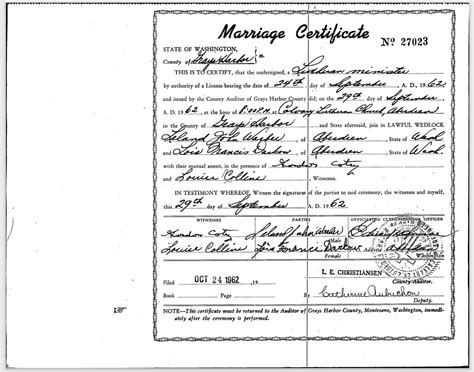 Marriage Certificate
No 27023
STATE OF WASHINGTON,
County of Grays Harbor } ss.
THIS IS TO CERTIFY, that the undersigned, a Lutheran minister
by authority of a License bearing the date of 24th day of September, A. D. 1962
and issued by the County Auditor of Grays Harbor County did, on the 29th day of September
A. D. 1962, at the hour of 8:00 P.M. at Calvary Lutheran Church, Aberdeen
in Grays Harbor County and State aforesaid, join in LAWFUL WEDLOCK
Leland John of Aberdeen, Wash.
and Lois of Aberdeen Wash.
with their mutual assent, in the presence of Coty
and Louise Colline, Witnesses.
IN TESTIMONY WHEREOF, Witness the signatures of the parties to said ceremony, the witnesses and myself,
this 29th day of September 1962
WITNESSES PARTIES OFFICIATING CLERGYMAN OR OFFICER
Coty Leland John
Louise Colline Address Washington
L. E. CHRISTIANSEN
Filed OCT 24 1962, 19
County Auditor.
Book Page By Catherine Aubuchon
Deputy.
NOTE—This certificate must be returned to the Auditor of Grays Harbor County, Montesano, Washington, immediately after ceremony is performed.